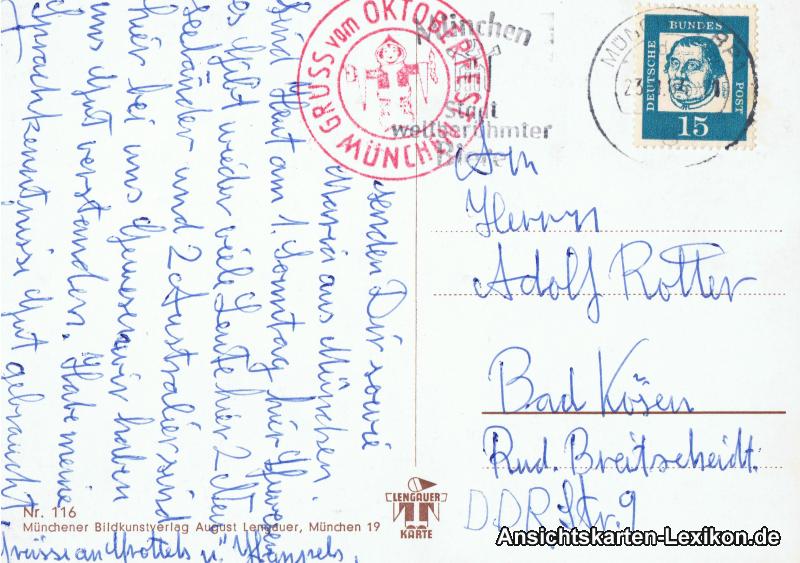 senden Dir sowie
Maria aus München
sind heut am 1. Sonntag hier gewesen
es gibt wieder viele Leute hier 2
seeländer und 2 Australier sind
hier bei uns gewesen wir haben
uns gut verstanden. Habe meine
Sprachkenntnisse gut gebraucht.
GRUSS vom OKTOBERFEST MÜNCHEN
München
Stadt
weltberühmter
Biere
MÜN
23
DEUTSCHE BUNDES POST
15
An
Herrn
Adolf Rotter
Bad Kösen
Rud. Breitscheidt.
DDR. Str. 9
Nr. 116
Münchener Bildkunstverlag August Lengauer, München 19
LENGAUER
KARTE
Ansichtskarten-Lexikon.de